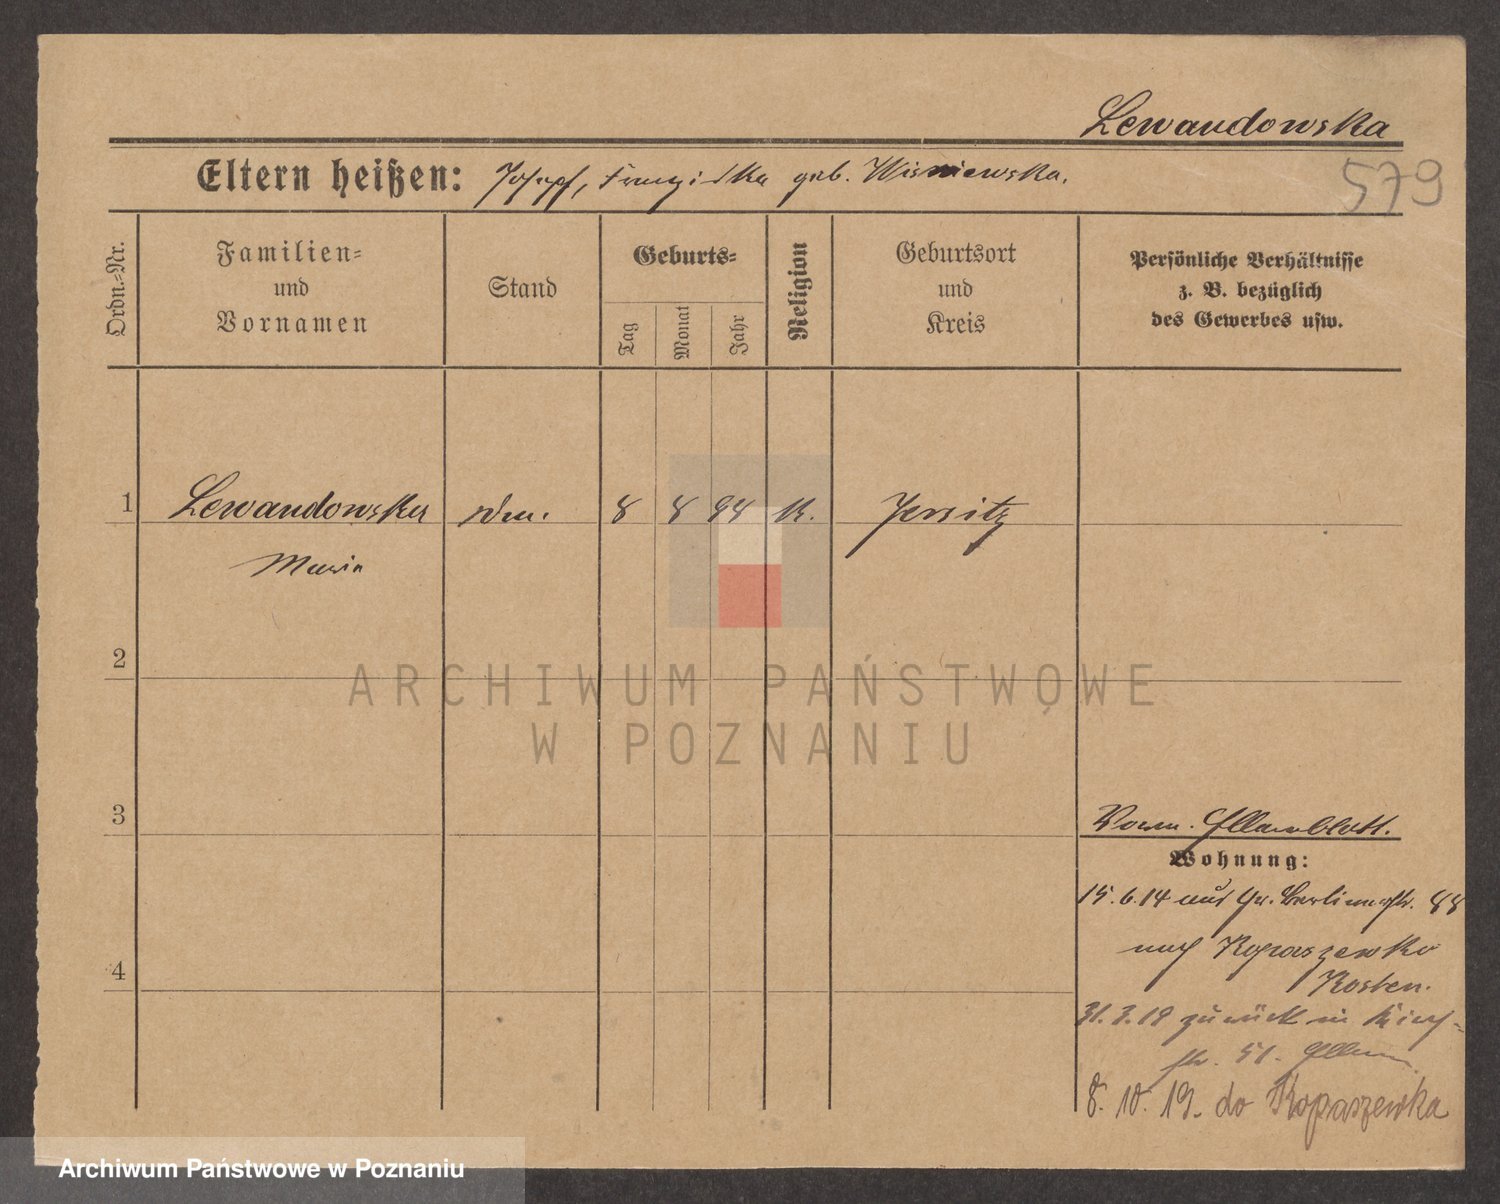 Lewandowska
Eltern heißen: Josef, Franziska geb. Wisniewska.
579
Ordn.-Nr.
Familien-
und
Vornamen
Stand
Geburts-
Tag
Monat
Jahr
Religion
Geburtsort
und
Kreis
Persönliche Verhältnisse
z. B. bezüglich
des Gewerbes usw.
1 Lewandowska 8 8 98 K. Jersitz
Maria
2
3
4
Elternblatt.
Wohnung:
15.6.14 aus Gr. Berlinerstr. 88
nach Kopaszewko
Kosten.
31.3.18 zurück in
str. 51. Eltern
8. 10. 19. do Kopaszewka
ARCHIWUM PAŃSTWOWE
W POZNANIU
Archiwum Państwowe w Poznaniu